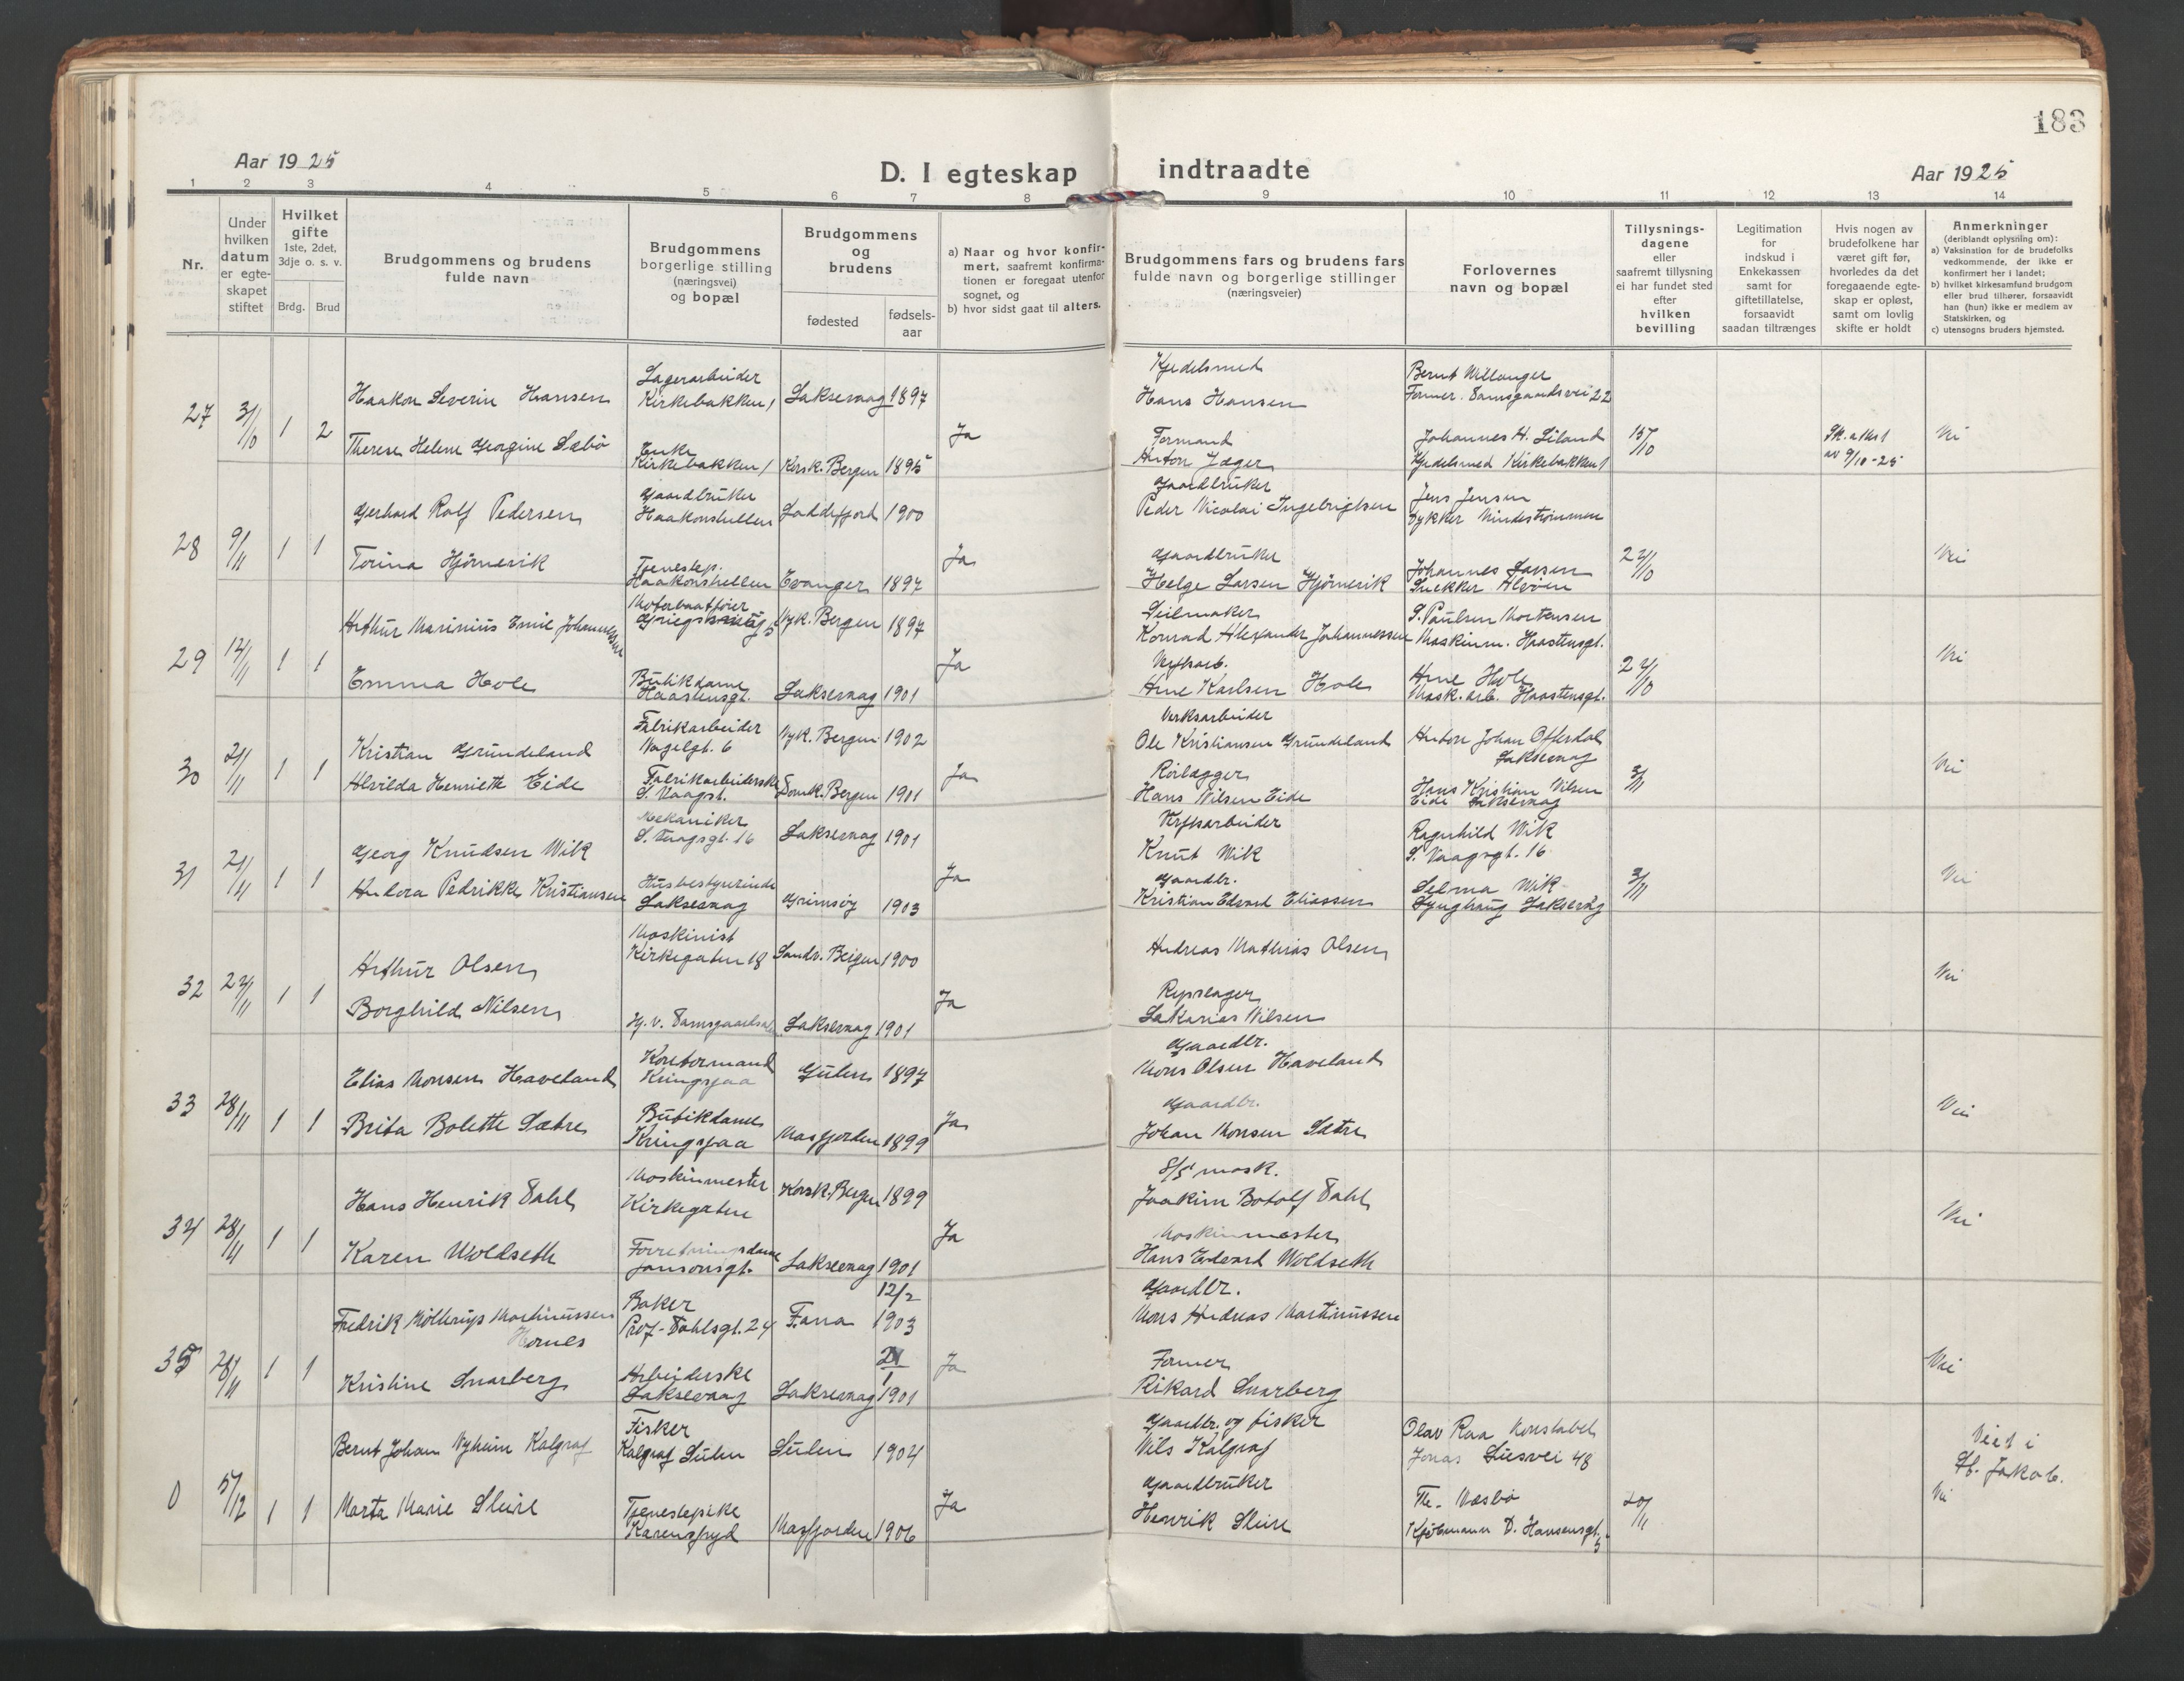 183
Aar 1925
D. I egteskap indtraadte
Aar 1925
1 2 3 4 5 6 7 8 9 10 11 12 13 14
Nr.
Under hvilken datum er egteskapet stiftet
Hvilket gifte 1ste, 2det, 3dje o. s. v.
Brdg. Brud
Brudgommens og brudens fulde navn
Brudgommens borgerlige stilling (næringsvei) og bopæl
Brudgommens og brudens
fødested
fødsels-aar
a) Naar og hvor konfir-
mert, saafremt konfirma-
tionen er foregaat utenfor
sognet, og
b) hvor sidst gaat til alters.
Brudgommens fars og brudens fars
fulde navn og borgerlige stillinger
(næringsveier)
Forlovernes
navn og bopæl
Tillysnings-
dagene
eller
saafremt tillysning
ei har fundet sted
efter
hvilken
bevilling
Legitimation
for
indskud i
Enkekassen
samt for
giftetillatelse,
forsaavidt
saadan tiltrænges
Hvis nogen av
brudefolkene har
været gift før,
hvorledes da det
foregaaende egte-
skap er opløst,
samt om lovlig
skifte er holdt
Anmerkninger
(deriblandt oplysning om):
a) Vaksination for de brudefolks
vedkommende, der ikke er
konfirmert her i landet;
b) hvilket kirkesamfund brudgom
eller brud tilhører, forsaavidt
han (hun) ikke er medlem av
Statskirken, og
c) utensogns bruders hjemsted.
27 3/10 1 2
Haakon Severin Hansen Lagerarbeider Kirkebakken 1 Laksevaag 1897 Kjedelsmed Hans Hansen Bernt Willanger Former. Damsgaardsvei 22
Therese Helene Georgine Sæbö Enke Kirkebakken 1 Korsk. Bergen 1895 Ja Formand Anton Jæger Johannes H. Liland Kjedelsmed Kirkebakken 1 15/10 Sk. attest av 9/10-25 Vei
28 9/11 1 1
Gerhard Rolf Pedersen Gaardbruker Haakonshellen Loddefjord 1900 Gaardbruker Peder Nicolai Ingebrigtsen Jens Jensen Dykker Mindestrømmen
Torina Hjörnevik Tjenestep. Haakonshellen Evanger 1897 Ja Gaardbruker Helge Larsen Hjörnevik Johannes Larsen Snekker Alvöen 22/10 Vei
29 12/11 1 1
Arthur Marinius Emil Johannessen Motorbaatfører Nyk. Bergen 1897 Seilmaker Konrad Alexander Johannessen S. Paulsen Mortensen Maskinm. Haastensgt.
Emma Hole Butikdame Haastensgt. Laksevaag 1901 Ja Verftsarb. Arne Karlsen Hole Arne Hole Mask. arb. Haastensgt. 22/10 Vei
30 21/11 1 1
Kristian Grundeland Fabrikarbeider Nagelgt. 6 Nyk. Bergen 1902 Verksarbeider Ole Kristiansen Grundeland Anton Johan Offerdal Laksevaag
Alvilda Henriette Eide Fabrikarbeiderske S. Vaagsgt. Domk. Bergen 1901 Ja Rörlægger Hans Nilsen Eide Hans Kristian Nilsen Eide Laksevaag 3/11 Vei
31 21/11 1 1
Georg Knudsen Wik Mekaniker S. Vaagsgt. 16 Laksevaag 1901 Verftsarbeider Knut Wik Ragnhild Wik S. Vaagsgt. 16
Andora Pedrikke Kristiansen Husbestyrerinde Laksevaag Grimsöy 1903 Ja Gaardbr. Kristian Edvard Eliassen Selma Wik Lynghaug Laksevåg 3/11 Vei
32 22/11 1 1
Arthur Olsen Maskinist Kirkegaten 18 Sandv. Bergen 1900 Andreas Mathias Olsen
Borghild Nilsen Hj. v. Damsgaardsalle Laksevaag 1901 Ja Repslager Sakarias Nilsen Vei
33 28/11 1 1
Elias Monsen Haveland Kontormand Kringsjaa Gulen 1897 Gaardbr. Mons Olsen Haveland
Brita Bolette Sætre Butikdame Kringsjaa Masfjorden 1899 Ja Gaardbr. Johan Monsen Sætre Vei
34 28/11 1 1
Hans Henrik Dahl Maskinmester Kirkegaten Korsk. Bergen 1899 Jaakim Botolf Dahl
Karen Woldseth Forretningsdame Jansonsgt. Laksevaag 1901 Ja Maskinmester Hans Edvard Woldseth Vei
35 28/11 1 1
Fredrik Möllerup Martinussen Hornes Baker Prof. Dahlsgt. 24 Fana 12/2 1903 Gaardbr. Mons Andreas Martinussen
Kristine Snarberg Arbeiderske Laksevaag Laksevaag 1901 Ja Former Rikard Snarberg Vei
0 5/12 1 1
Bernt Johan Nyheim Kalgraf Fisker Kalgraf Sulen Sulen 1904 Gaardbr. og fisker Nils Kalgraf Olav Raa Konstabel Jonas Liesvei 48 Viet i St. Jakob.
Marta Marie Sleire Tjenestepike Masfjorden 1906 Ja Gaardbruker Henrik Sleire Th. Næsbö Kjöbmann D. Hansensgt. 5 20/11 Vei